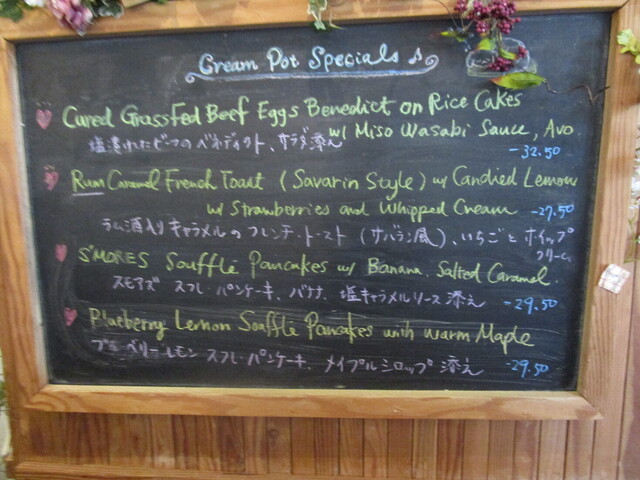 Cream Pot Specials ♪
Cured Grassfed Beef Eggs Benedict on Rice Cakes
w/ Miso Wasabi Sauce, Avo.
塩漬けたビーフの ベネディクト、サラダ添え
-32.50
Rum Caramel French Toast (Savarin Style) w/ Candied Lemon
w/ Strawberries and Whipped Cream -27.50
ラム酒入り キャラメルの フレンチ・トースト (サバラン風)、いちごと ホイップ
クリーム
S'MORES Soufflé Pancakes w/ Banana, Salted Caramel.
スモアズ スフレ・パンケーキ、バナナ、塩キャラメルソース 添え -29.50
Blueberry Lemon Soufflé Pancakes with warm Maple
ブルーベリーレモン スフレ・パンケーキ、メイプルシロップ 添え -29.50